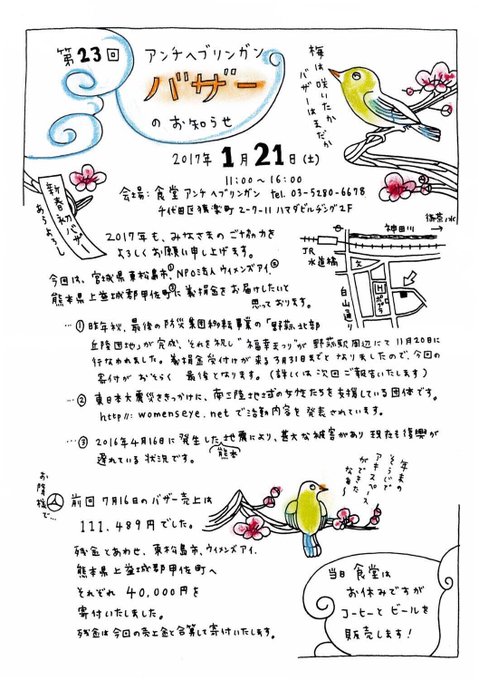 第23回
アンチヘブリンガン
バザー
のお知らせ
梅は咲いたか
バザーはまだか
2017年1月21日(土)
11:00〜16:00
会場:食堂アンチヘブリンガン tel. 03-5280-6678
千代田区猿楽町2-7-11ハマダビルヂング2F
新春初バザー
あらよっ
2017年も、みなさまのご協力を
よろしくお願い申し上げます。
今回は、宮城県東松島市①、NPO法人ウィメンズアイ②、
熊本県上益城郡甲佐町③に義捐金をお届けしたいと
思っております。
御茶ノ水
神田川
JR
水道橋
白山通り
…①昨年秋、最後の防災集団移転事業の「野蒜北部
丘陵団地」が完成、それを祝し"福幸まつり"が野蒜駅周辺にて11月20日に
行なわれました。義捐金受付けが来る3月31日までとなりましたので、今回の
寄付がおそらく最後となります。(詳しくは次回ご報告いたします)
…②東日本大震災をきっかけに、南三陸地域の女性たちを支援している団体です。
http://womenseye.netで活動内容を発表されています。
…③2016年4月16日に発生した熊本地震により、甚大な被害があり現在も復興が
遅れている状況です。
お陰様で…
前回7月16日のバザー売上は
111,489円でした。
残金とあわせ、東松島市、ウィメンズアイ、
熊本県上益城郡甲佐町へ
それぞれ40,000円を
寄付いたしました。
残金は今回の売上金と合算して寄付いたします。
年末の
そうじで
アキスペース
ができた
なあ〜
当日食堂は
お休みですが
コーヒーとビールを
販売します!